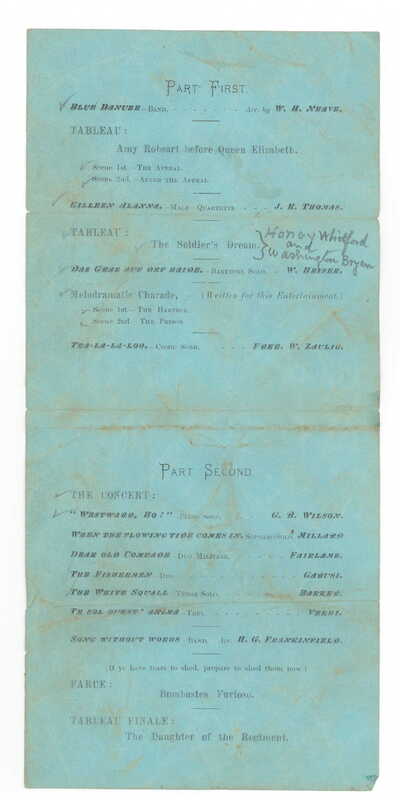 PART FIRST.
BLUE DANUBE—BAND, Arr. by W. H. NEAVE.
TABLEAU:
Amy Robsart before Queen Elizabeth.
SCENE 1st.—THE APPEAL.
SCENE 2nd.—AFTER THE APPEAL.
EILLEEN ALANNA,—MALE QUARTETTE J. R. THOMAS.
TABLEAU:
The Soldier's Dream,
Whitford
and
Washington Bryan
DAS GRAB AUF DER HAIDE,—BARITONE SOLO. W. HEISER.
Melodramatic Charade, (Written for this Entertainment.)
SCENE 1st—THE
SCENE 2nd—THE PRISON
TRA-LA-LA-LOO,—COMIC SONG, FRED. W. ZAULIG.
PART SECOND.
THE CONCERT:
"WESTWARD, HO!" SOLO, G. R. WILSON.
WHEN THE FLOWING TIDE COMES IN, SOPRANO SOLO MILLARD
DEAR OLD COMRADE DUO MILITAIR, FAIRLAMB.
THE FISHERMEN DUO GABUSI.
THE WHITE SQUALL TENOR SOLO, BARKER.
TE SOL QUEST' ANIMA TRIO, VERDI.
SONG WITHOUT WORDS BAND, H. G. FRANKINFIELD.
(If ye have tears to shed, prepare to shed them now.)
FARCE:
Bombastes Furioso.
TABLEAU FINALE:
The Daughter of the Regiment.